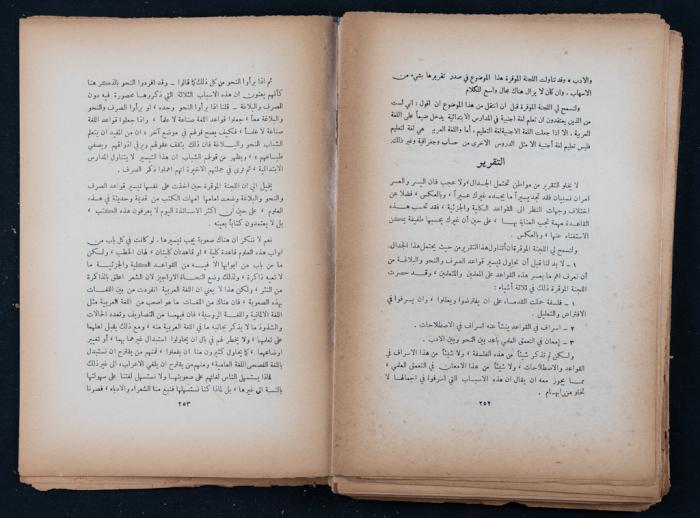 والادب » وقد تناولت اللجنة الموقرة هذا الموضوع في صدر تقريرها بشيء من
الاسهاب . وان كان لا يزال هناك مجال واسع للكلام
ولتسمح لي اللجنة الموقرة قبل ان انتقل من هذا الموضوع ان اقول : اني لست
من الذين يعتقدون ان تعلم لغة اجنبية في المدارس الابتدائية يدخل ضيماً على اللغة
العربية ، الا اذا جعلت اللغة الاجنبية لغة التعليم ، أما واللغة العربية هي لغة التعليم
فليس تعليم لغة أجنبية الا مثل الدروس الاخرى من حساب وجغرافية وغير ذلك.
التقرير
لا يخلو التقرير من مواطن تحتمل الجدال ، ولا عجب فان اليسر والعسر
امران نسبيان فقد تجد يسيراً ما يجده غيرك عسيراً ، وبالعكس ، فضلا عن
اختلاف وجهات النظر الى القواعد الكلية والجزئية ، فقد تحسب هذه
القاعدة مهمة تجب العناية بها ، على حين أن غيرك يحسبها طفيفة يمكن
الاستغناء عنها ، وبالعكس .
ولتسمح لي اللجنة الموقرة بان أتناول هذا التقرير من حيث يحتمل هذا الجدال.
١ ـ بد لنا قبل أن نحاول تيسير قواعد الصرف والنحو والبلاغة من
أن نعرف اهم ما يعسر هذه القواعد على المعلمين والمتعلمين ، وقد حصرت
اللجنة الموقرة ذلك في ثلاثة أشياء :
١ ـ فلسفة حملت القدماء على ان يفترضوا ويعللوا ، وان يسرفوا في
الافتراض والتعليل .
٢ ـ اسراف في القواعد ينشأ عنه اسراف في الاصطلاحات .
٣ ـ إمعان في التعمق العلمي باعد بين النحو وبين الادب .
ولكن لم تذكر شيئاً من هذه الفلسفة ، ولا شيئاً من هذا الاسراف في
القواعد والاصطلاحات ، ولا شيئاً من هذا الامعان في التعمق العلمي ،
مما يجوز معه ان يقال ان هذه الاسباب التي أسرفوا في اجمالها لا
تخلو من إبهام .
٢٥٢
ثم اذا برأوا النحو من كل ذلك كما قالوا ـ وقد افردوا النحو بالذكر هنا
كأنهم يعنون ان هذه الاسباب الثلاثة التي ذكروها محصورة فيه دون
الصرف والبلاغة ـ قلنا اذا برأوا النحو وحده ، او برأوا الصرف والنحو
والبلاغة معاً ، جعلوا قواعد اللغة صناعة لا علماً ، واذا جعلوا قواعد اللغة
صناعة لا علماً ، فكيف يصح قولهم في موضع آخر « ان من المفيد ان يتعلم
الشباب النحو والبلاغة فان ذلك يثقف عقولهم ويرقي اذواقهم ويصفي
طباعهم » ، ويظهر من قولهم الشباب ان هذا التيسير لا يتناول المدارس
الابتدائية ، ثم ترى في جملتهم الاخيرة انهم اهملوا ذكر الصرف .
يخيل الي ان اللجنة الموقرة حين اخذت على نفسها تيسير قواعد
الصرف والنحو والبلاغة وضعت امامها امهات الكتب من قديمة وحديثة في هذه
العلوم ، على حين أن اكثر الاساتذة اليوم لا يعرفون هذه الكتب ،
بل لا يعتمدون كتاباً بعينه .
نعم لا ننكر ان هناك صعوبة يجب تيسيرها ، لو كانت في كل باب من
ابواب هذه العلوم قاعدة كلية ، او قاعدتان كليتان ، لهان الخطب ، ولكن
ما من باب من ابوابها الا فيه من القواعد الكلية والجزئية ما
لا تعيه ذاكرة ، ولذلك وضع النحاة الاراجيز لان الشعر اعلق بالذاكرة
من النثر ، ولكن هذا لا يعني ان اللغة العربية انفردت من بين اللغات
بهذه الصعوبة ، فان هناك من اللغات ما هو اصعب من اللغة العربية مثل
اللغة الالمانية واللغة الروسية، فان فيهما من التصاريف وتعدد الحالات
والشذوذ ما لا يذكر بجانبه ما في اللغة العربية منه ، ومع ذلك يقبل اهلها
على تعلمها ، ولا يخطر لهم في بال ان يحاولوا استبدال غيرهما بهما ، أو تغيير
اوضاعهما ، كما يحاول كثيرون منا ان يفعلوا ، فمنهم من يقترح ان نستبدل
باللغة الفصحى اللغة العامية، ومنهم من يقترح ان يلغي الاعراب، الى غير ذلك
فلماذا يستسهل الناس لغاتهم على صعوبتها ولا نستسهل لغتنا على سهولتها
بالنسبة الى غيرها ، بل لماذا كنا نستسهلها فنبغ منا الشعراء والادباء ، فصرنا
٢٥٣